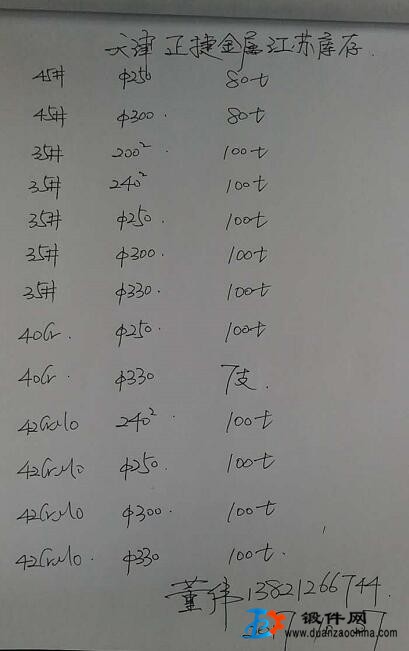 天津正捷金属江苏库存.
45# φ250 80t
45# φ300. 80t
35# 200² 100t
35# 240² 100t
35# φ250. 100t
35# φ300. 100t
35# φ330. 100t
40Cr φ250. 100t
40Cr. φ330 7支.
42CrMo 240² 100t
42CrMo φ250. 100t
42CrMo φ300. 100t
42CrMo. φ330 100t.
董伟 13821266744
锻件网
www.duanzaochina.com